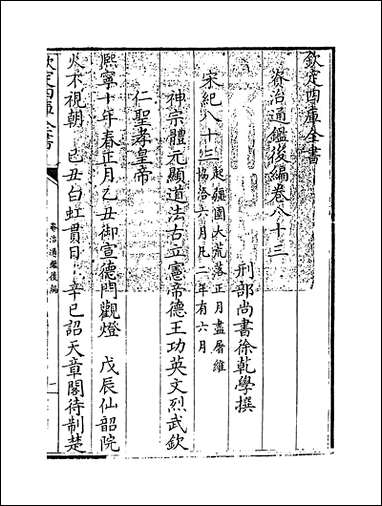 欽定四庫全書
資治通鑑後編卷八十三
刑部尚書徐乾學撰
宋紀八十三起疆圉大荒落正月盡屠維
協洽六月凡二年有六月
神宗體元顯道法古立憲帝德王功英文烈武欽
仁聖孝皇帝
熙寧十年春正月乙丑御宣德門觀燈　戊辰仙韶院
火不視朝　己丑白虹貫日　辛巳詔天章閣待制楚
欽定四庫全書
資治通鑑後編
一